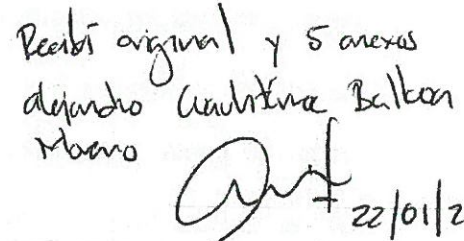 Recibí original y 5 anexos
alejandro Cuauhtémoc Balleza
Moreno
22/01/2